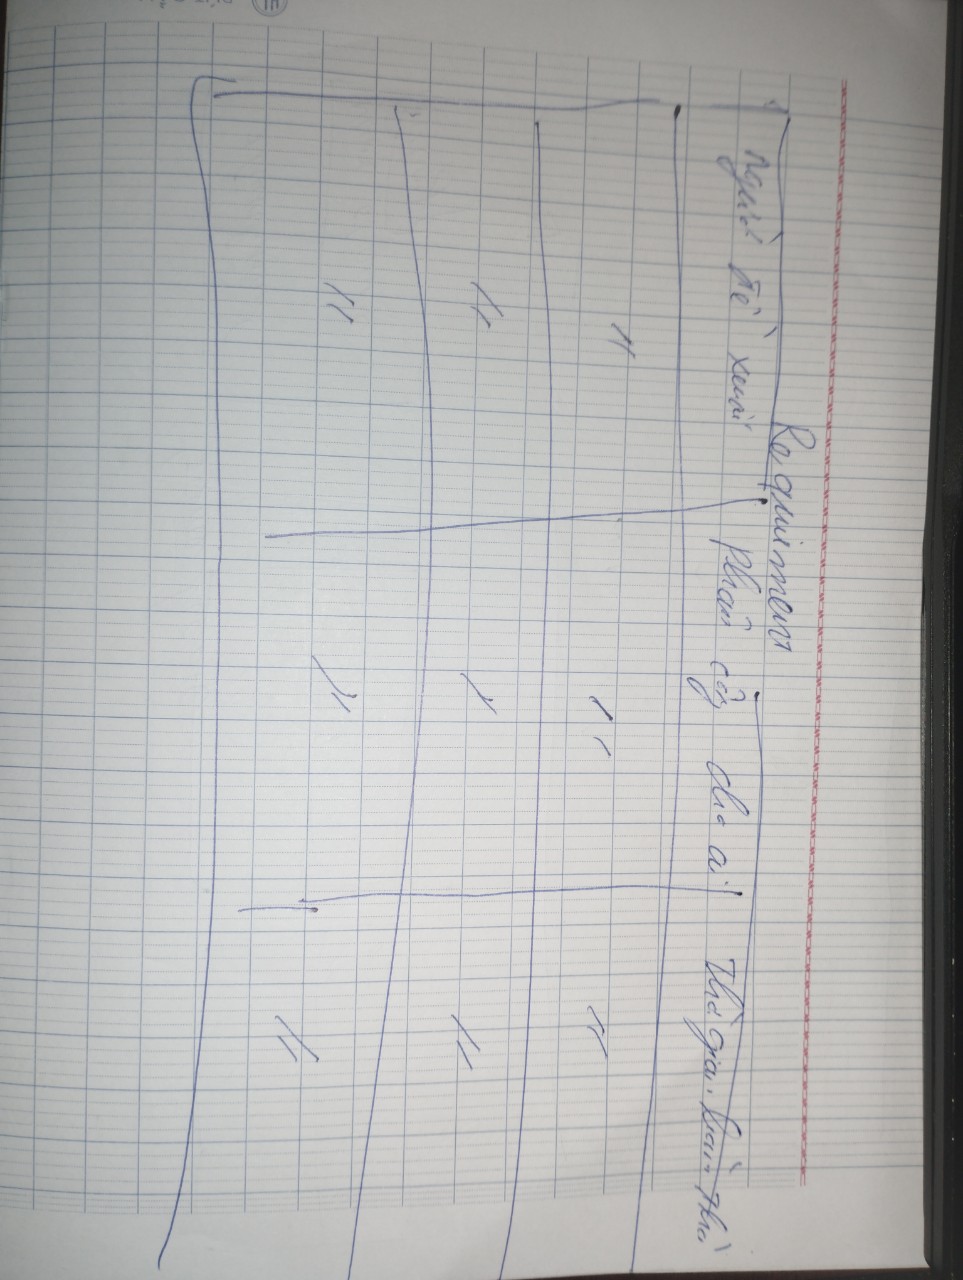 Requirement
Người đề xuất
Phân công cho ai
Thời gian hoàn thà
" " "
" " "
" " "